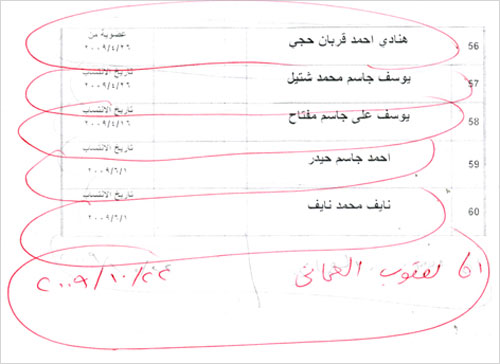 56 هنادي احمد قربان حجي عضوية من
٢٠٠٩/٤/٢٦
57 يوسف جاسم محمد شتيل تاريخ الانتساب
٢٠٠٩/٤/٢٦
58 يوسف على جاسم مفتاح تاريخ الانتساب
٢٠٠٩/٤/٢٦
59 احمد جاسم حيدر تاريخ الانتساب
٢٠٠٩/٦/١
60 نايف محمد نايف تاريخ الانتساب
٢٠٠٩/٦/١
٦١ يعقوب ٢٠٠٩/١٠/٢٤